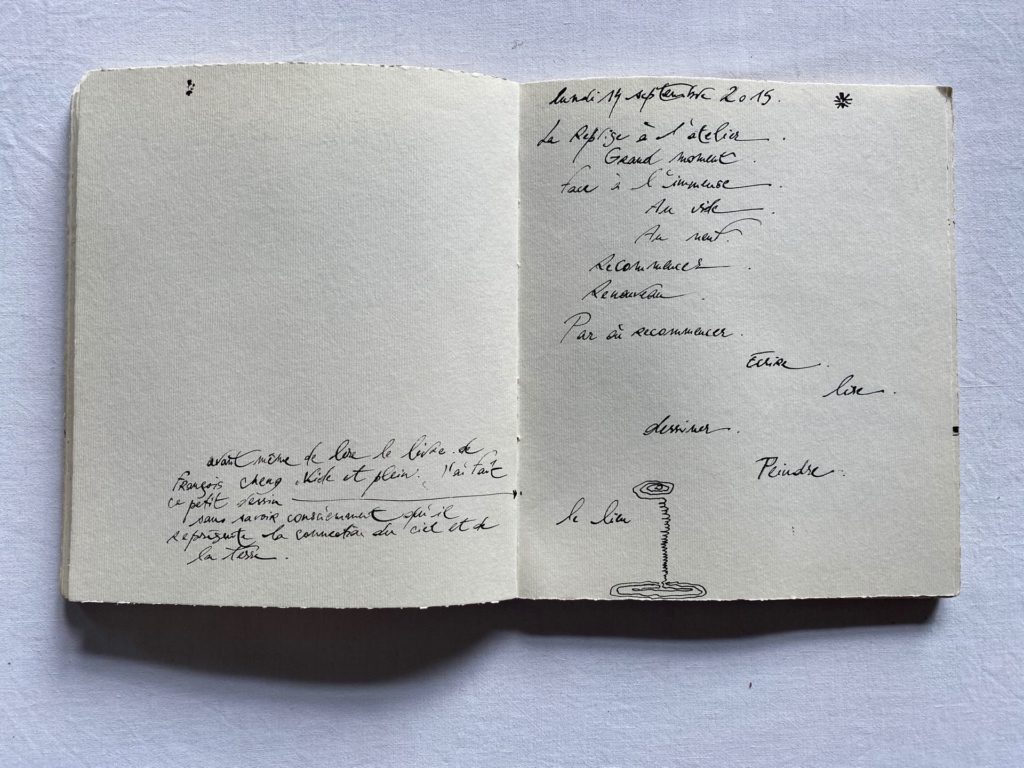 avant même de lire le livre de
François Cheng Vide et plein. J'ai fait
ce petit dessin
sans savoir consciemment qu'il
représente la connection du ciel et de
la terre.
lundi 14 septembre 2015.
La Reprise à l'atelier.
Grand moment.
Face à l'immense.
Au vide.
Au neuf.
Recommencer.
Renouveau.
Par où recommencer.
Écrire.
lire.
dessiner.
Peindre.
le lieu